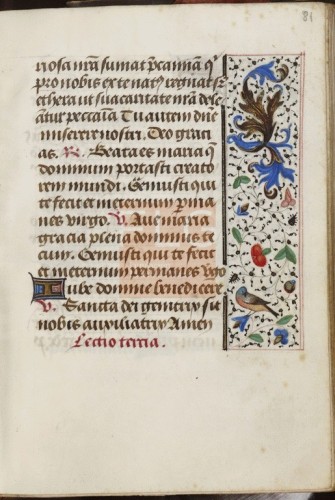 81
riosa nr̄a sumat p̄camina q̄
pro nobis ex te nat9 regnat sr̄
ethera ut sua caritate nr̄a dele
antur peccata Tu autem dn̄e
miserere nostri. Deo graci
as. R. Beata es maria q̄
dominum portasti creato
rem mundi. Genuisti qui
te fecit et ineternum p̄ma
nes virgo. V. Ave maria
gracia plena dominus te
cum. Genuisti qui te fecit
et ineternum permanes v̄go
Iube domne benedicere
V. Sancta dei genitrix sit
nobis auxiliatrix Amen
Lectio tercia.